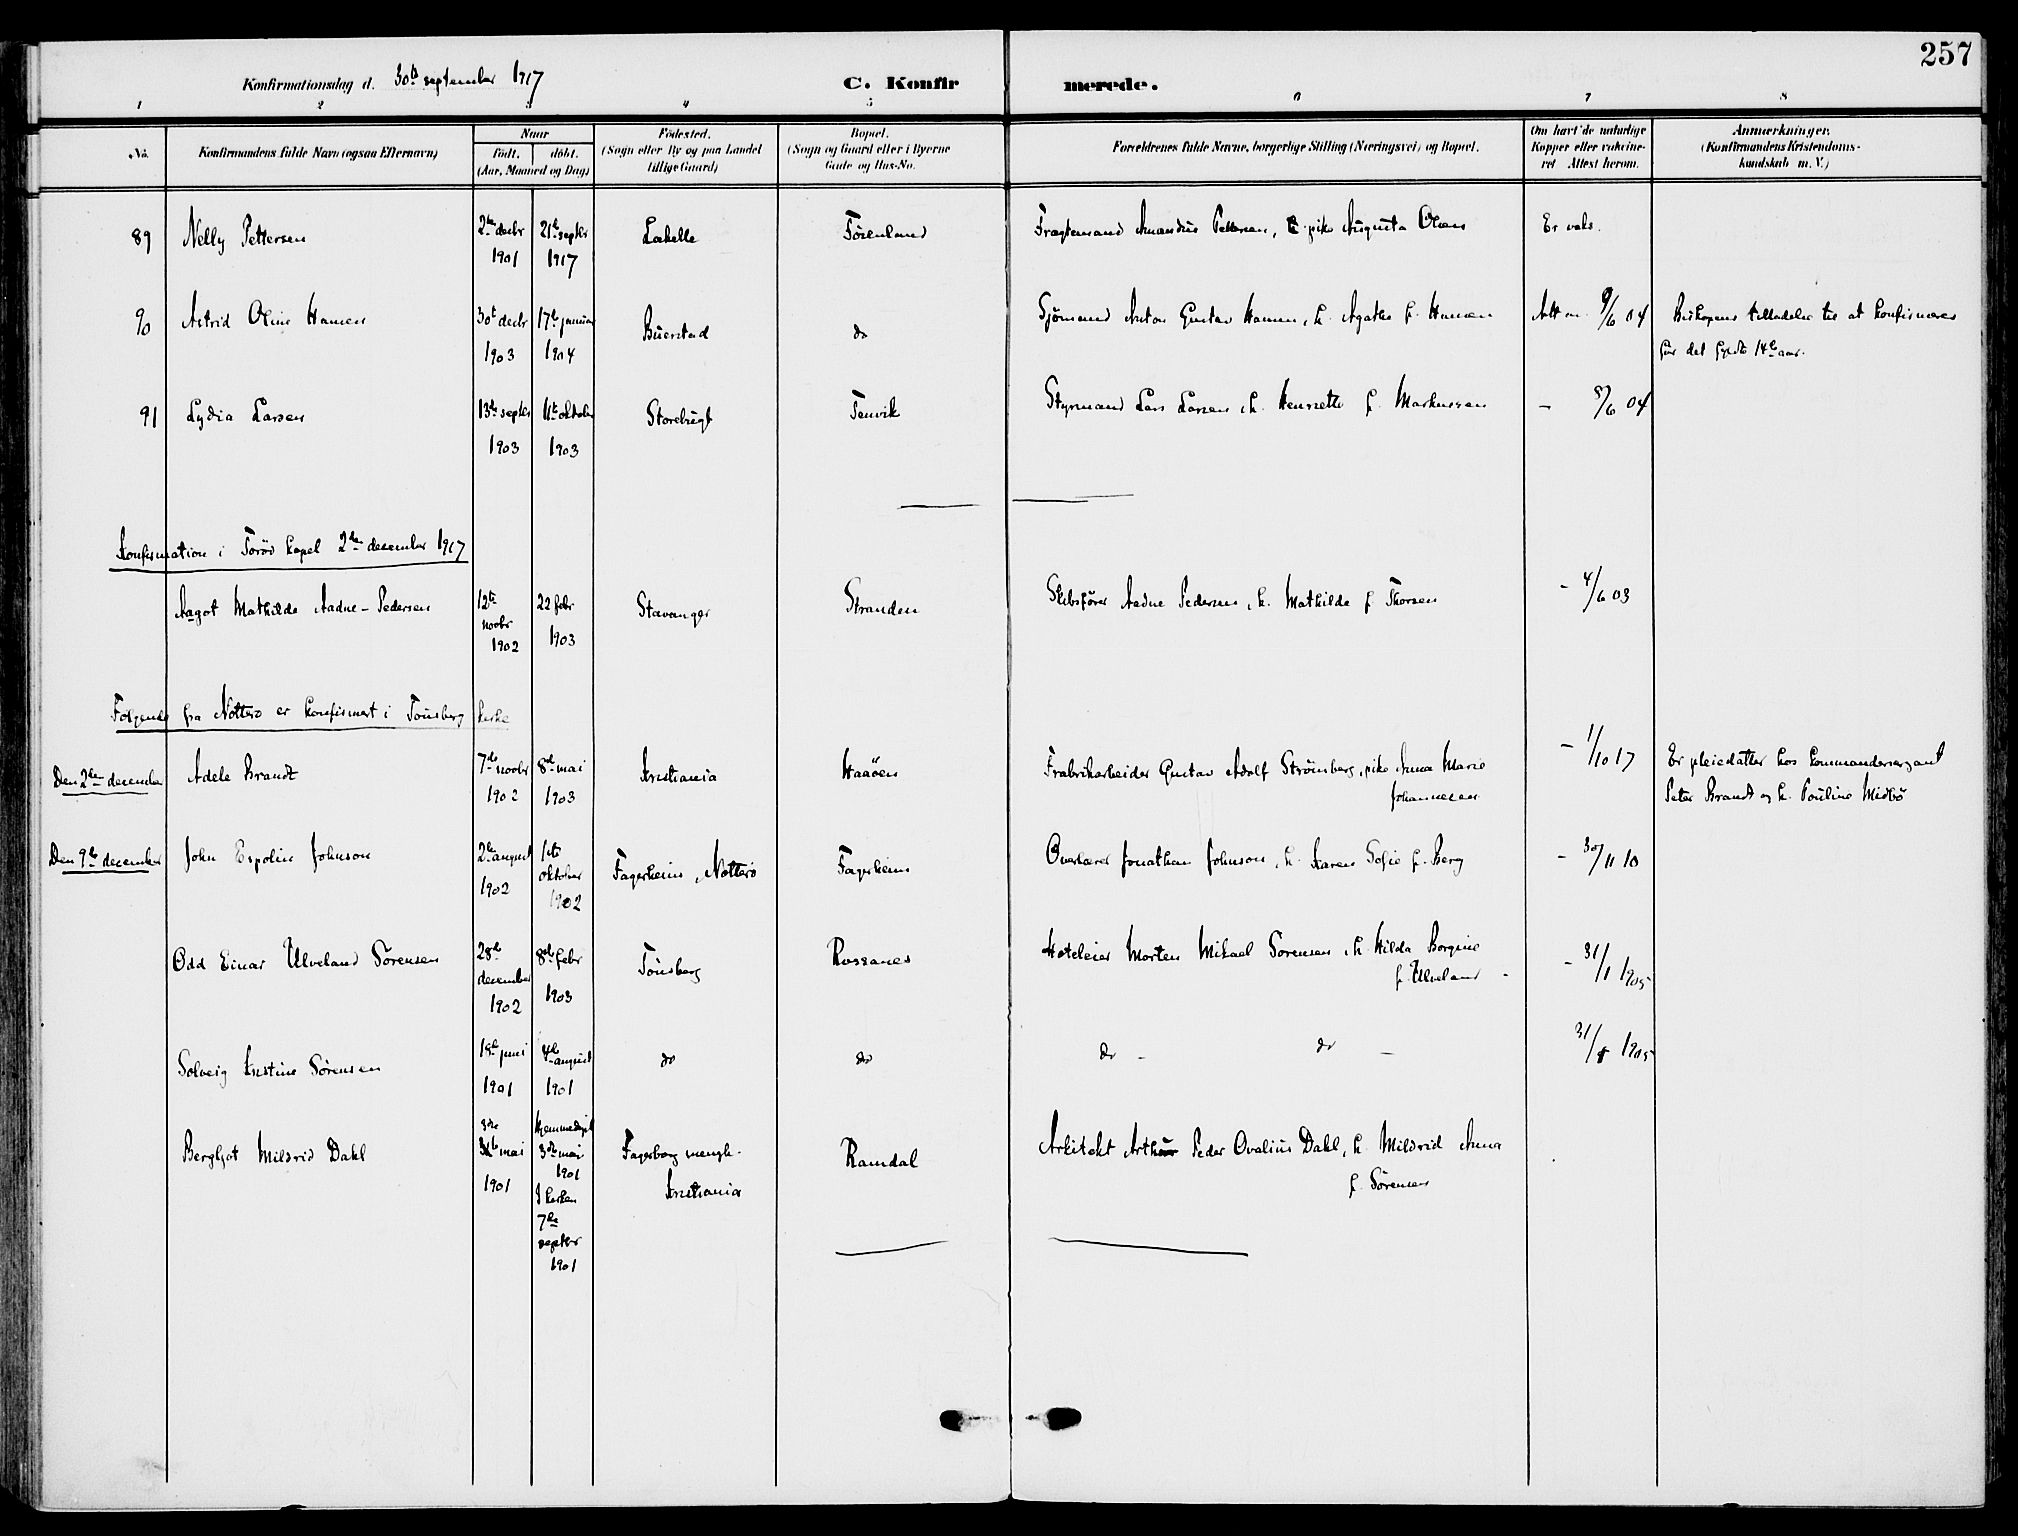 257
Konfirmationsdag d. 30te september 1917
C. Konfirmerede.
1 2 3 4 5 6 7 8
No.
Konfirmandens fulde Navn (ogsaa Efternavn)
Naar
født. døbt.
(Aar, Maaned og Dag)
Fødested.
(Sogn eller By og paa Landet
tillige Gaard)
Bopæl.
(Sogn og Gaard eller i Byerne
Gade og Hus-No.
Forældrenes fulde Navne, borgerlige Stilling (Næringsvei) og Bopæl.
Om havt de naturlige
Kopper eller vaksine-
ret Attest herom.
Anmærkninger.
(Konfirmandens Kristendoms-
kundskab m. V.)
89 Nelly Pettersen 2den decbr 1901 21de septbr 1917 Lahelle Førenland Fragtemand Amandus Pettersen, pike Augusta Olsen Er vaks.
90 Astrid Oline Hansen 30te decbr 1903 17de januar 1904 Buerstad do Sjømand Anton Gustav Hansen, h. Agathe f. Hansen Att. 9/6 04 Biskopens tilladelse til at konfirmeres
før det fyldte 14de aar.
91 Lydia Larsen 13de septbr 1903 11te oktober 1903 Storebugt Tenvik Styrmand Lars Larsen, h. Henriette f. Markussen - 8/6 04
Konfirmation i Torød kapel 2den desember 1917
Aagot Mathilde Aadne-Pedersen 12te novbr 1902 22 febr 1903 Stavanger Stranden Skibsfører Aadne Pedersen, h. Mathilde f. Thorsen - 4/6 03
Følgende fra Nøtterø er konfirmert i Tønsberg kirke
Den 2den december Adele Brandt 7de novbr 1902 8de mai 1903 Kristiania Haaøen Frabrikarbeider Gustav Adolf Strømberg, pike Anna Marie
Johannesen - 1/10 17 Er pleiedatter hos kommandersergant
Peter Brandt og h. Pouline Midbø
Den 9de december John Espolin Johnson 2den august 1902 1ste oktober 1902 Fagerheim, Nøtterø Fagerheim Overlærer Jonathan Johnson, h. Karen Sofie f. Berg - 30/11 10
Odd Einar Ulveland Sørensen 28de december 1902 8de febr 1903 Tønsberg Rossanes Hoteleier Morten Mikael Sørensen, h. Hilda Borgine
f. Ulveland - - 31/1 1905
Solveig Kristine Sørensen 19de juni 1901 4de august 1901 do do do - do - 31/1 1905
Bergljot Mildrid Dahl 3die mai 1901 Hjemmedøpt 3die mai 1901 I kirken 7de septbr 1901 Fagerborg mengh.
Kristiania Ramdal Arkitekt Arthur Peder Ovalius Dahl, h. Mildrid Anna
f. Sørensen